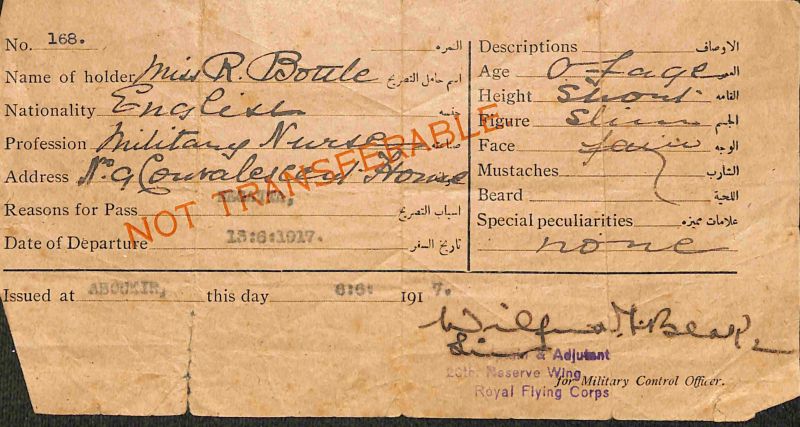 No. 168. النمره
Name of holder Miss R. Bottle اسم حامل التصريح
Nationality English جنسه
Profession Military Nurse صناعته
Address No 9 Convalescent Home
Reasons for Pass اسباب التصريح
Date of Departure 13:6:1917. تاريخ السفر
NOT TRANSFERABLE.
Issued at ABOUKIR, this day 6:6: 1917.
Descriptions الاوصاف
Age Of age العمر
Height Short القامه
Figure Slim الجسم
Face fair الوجه
Mustaches الشارب
Beard اللحية
Special peculiarities علامات مميزه
none
& Adjutant
20th. Reserve Wing
Royal Flying Corps
for Military Control Officer.